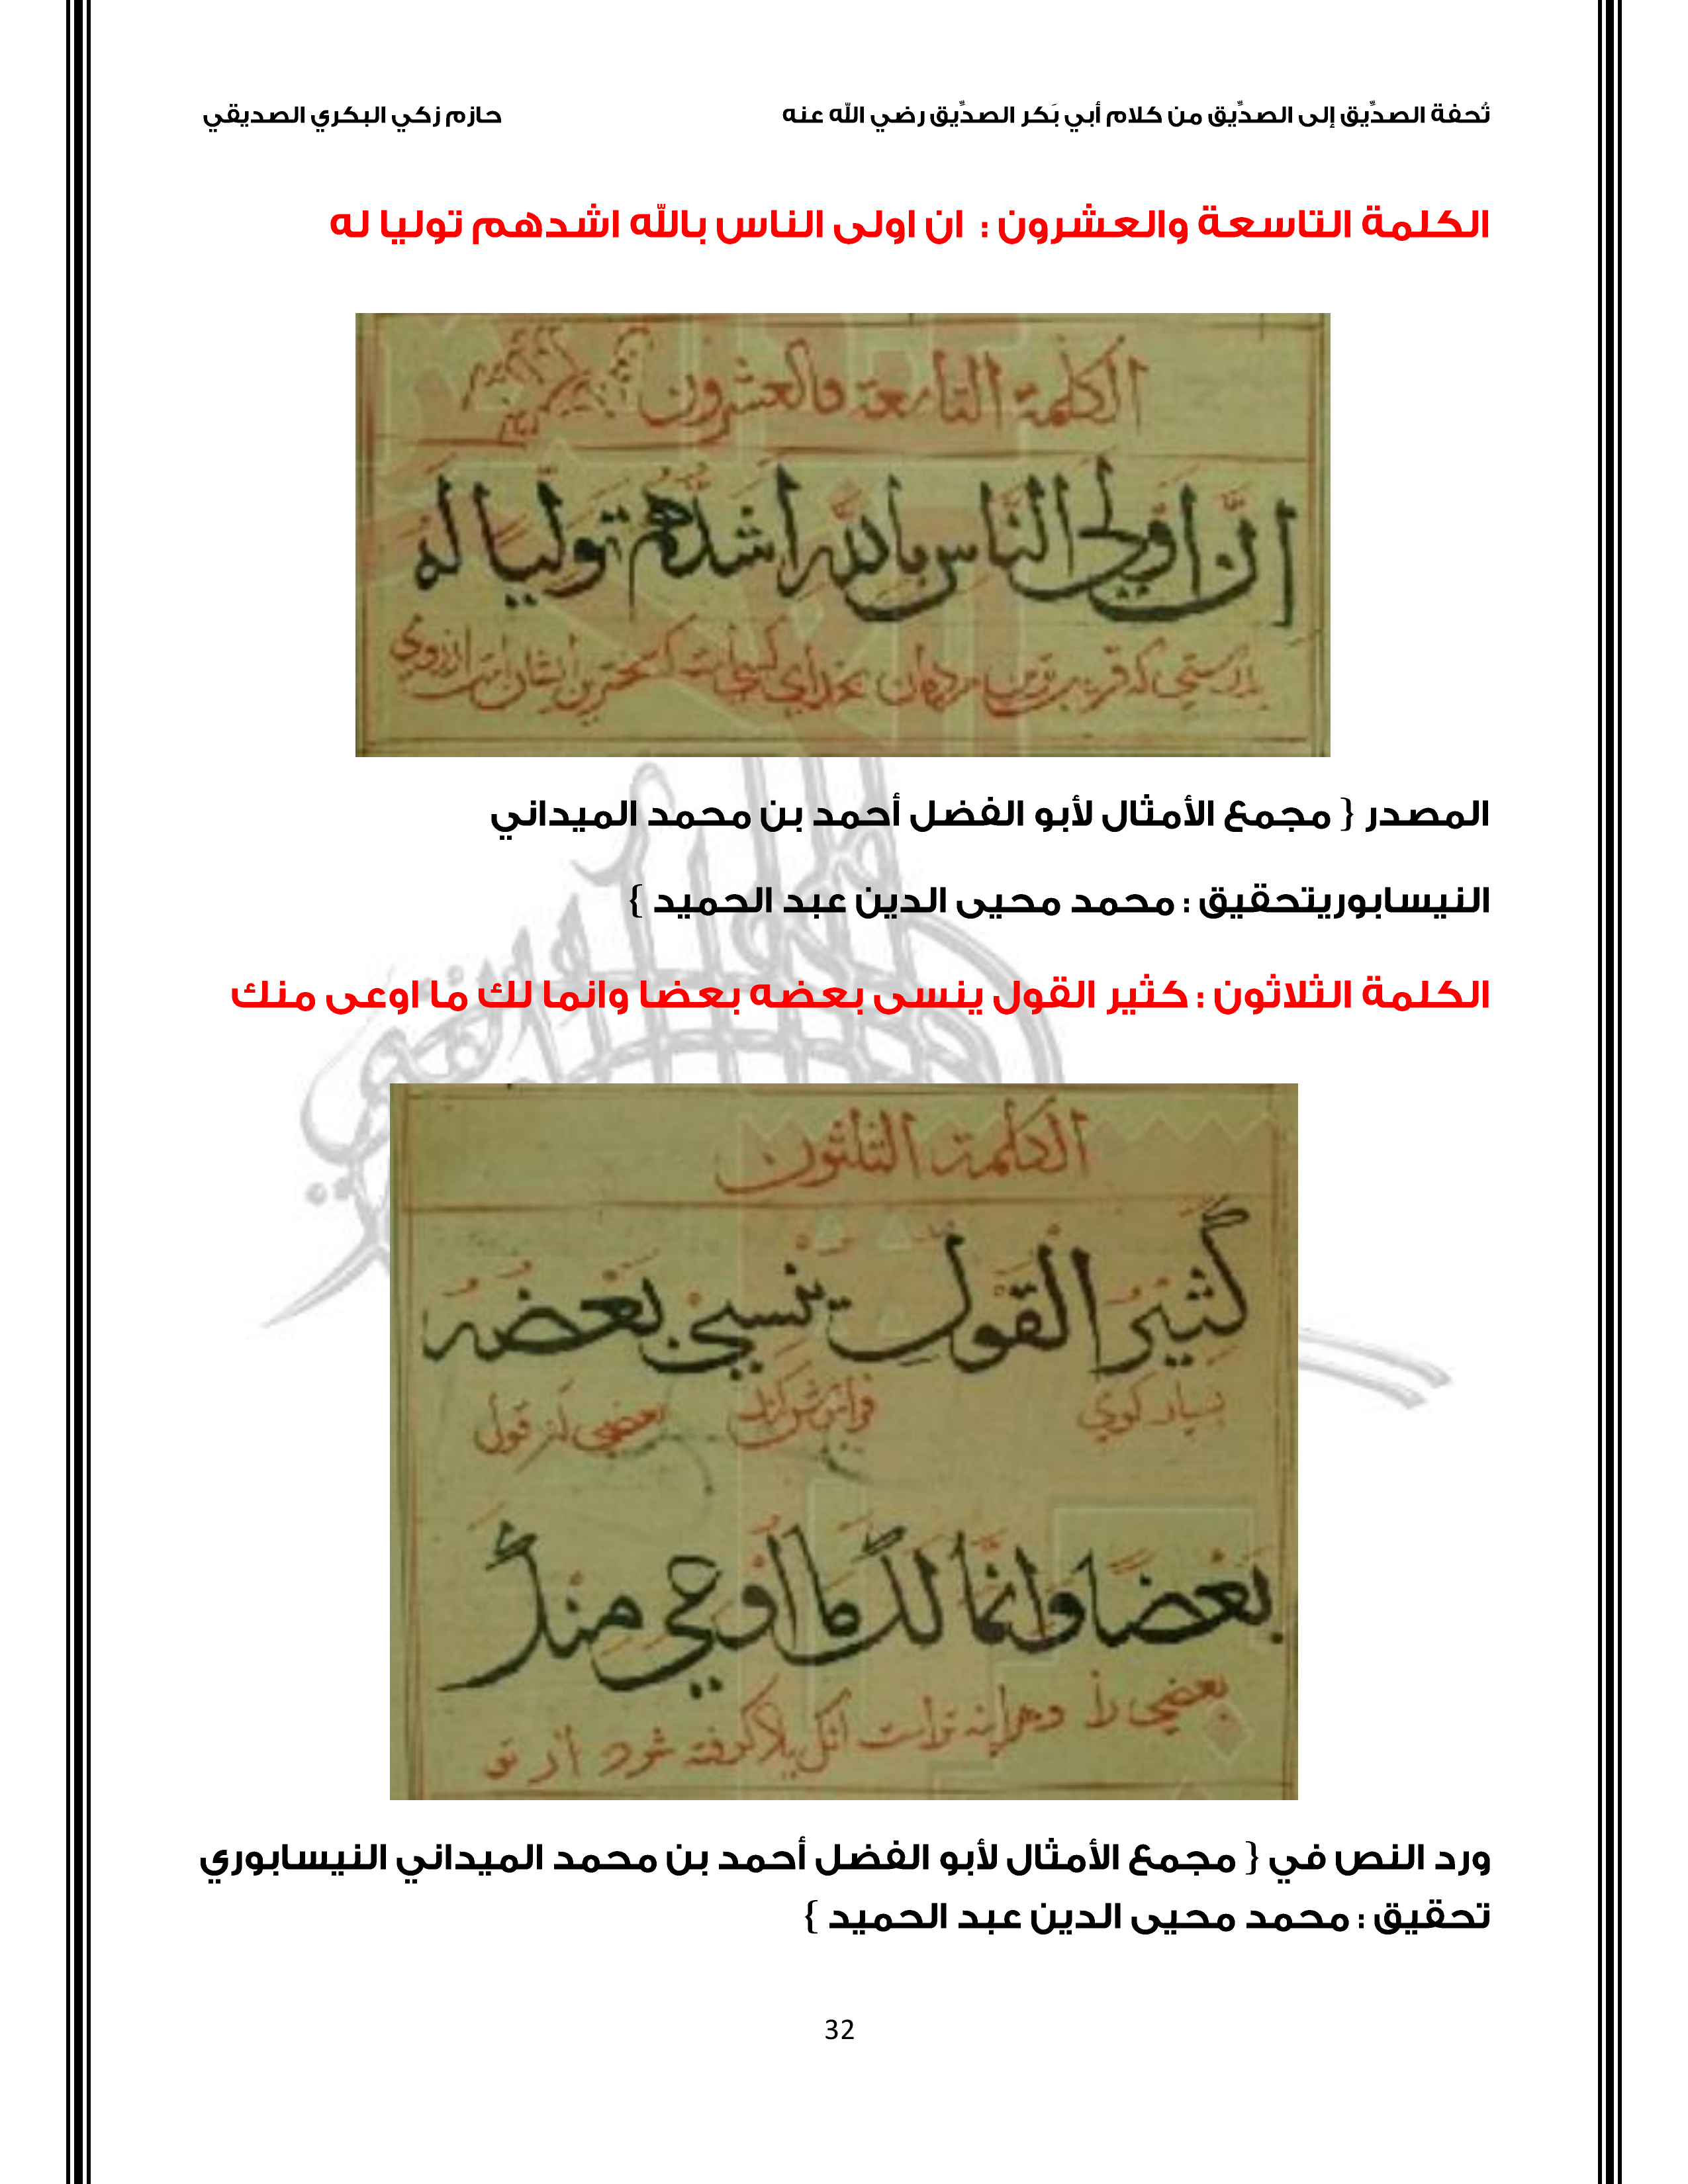 تُحفة الصدِّيق إلى الصدِّيق من كلام أبي بَكر الصدِّيق رضي الله عنه حازم زكي البكري الصديقي
الكلمة التاسعة والعشرون : ان اولى الناس بالله اشدهم توليا له
الكلمة التاسعة والعشرون
اِنَّ اَوْلَى النَّاسِ بِاللهِ اَشَدُّهُمْ تَوَلِّيًا لَهُ
المصدر { مجمع الأمثال لأبو الفضل أحمد بن محمد الميداني
النيسابوريتحقيق : محمد محيى الدين عبد الحميد }
الكلمة الثلاثون : كثير القول ينسى بعضه بعضا وانما لك ما اوعى منك
الكلمة الثلثون
كَثِيْرُ الْقَوْلِ يَنْسِيْ بَعْضُهُ
بسيار كوي بعضي از قول
بَعْضًا وَاِنَّمَا لَكَ مَا اُوْعِيَ مِنْكَ
بعضي را گرفته شود از تو
ورد النص في { مجمع الأمثال لأبو الفضل أحمد بن محمد الميداني النيسابوري
تحقيق : محمد محيى الدين عبد الحميد }
32